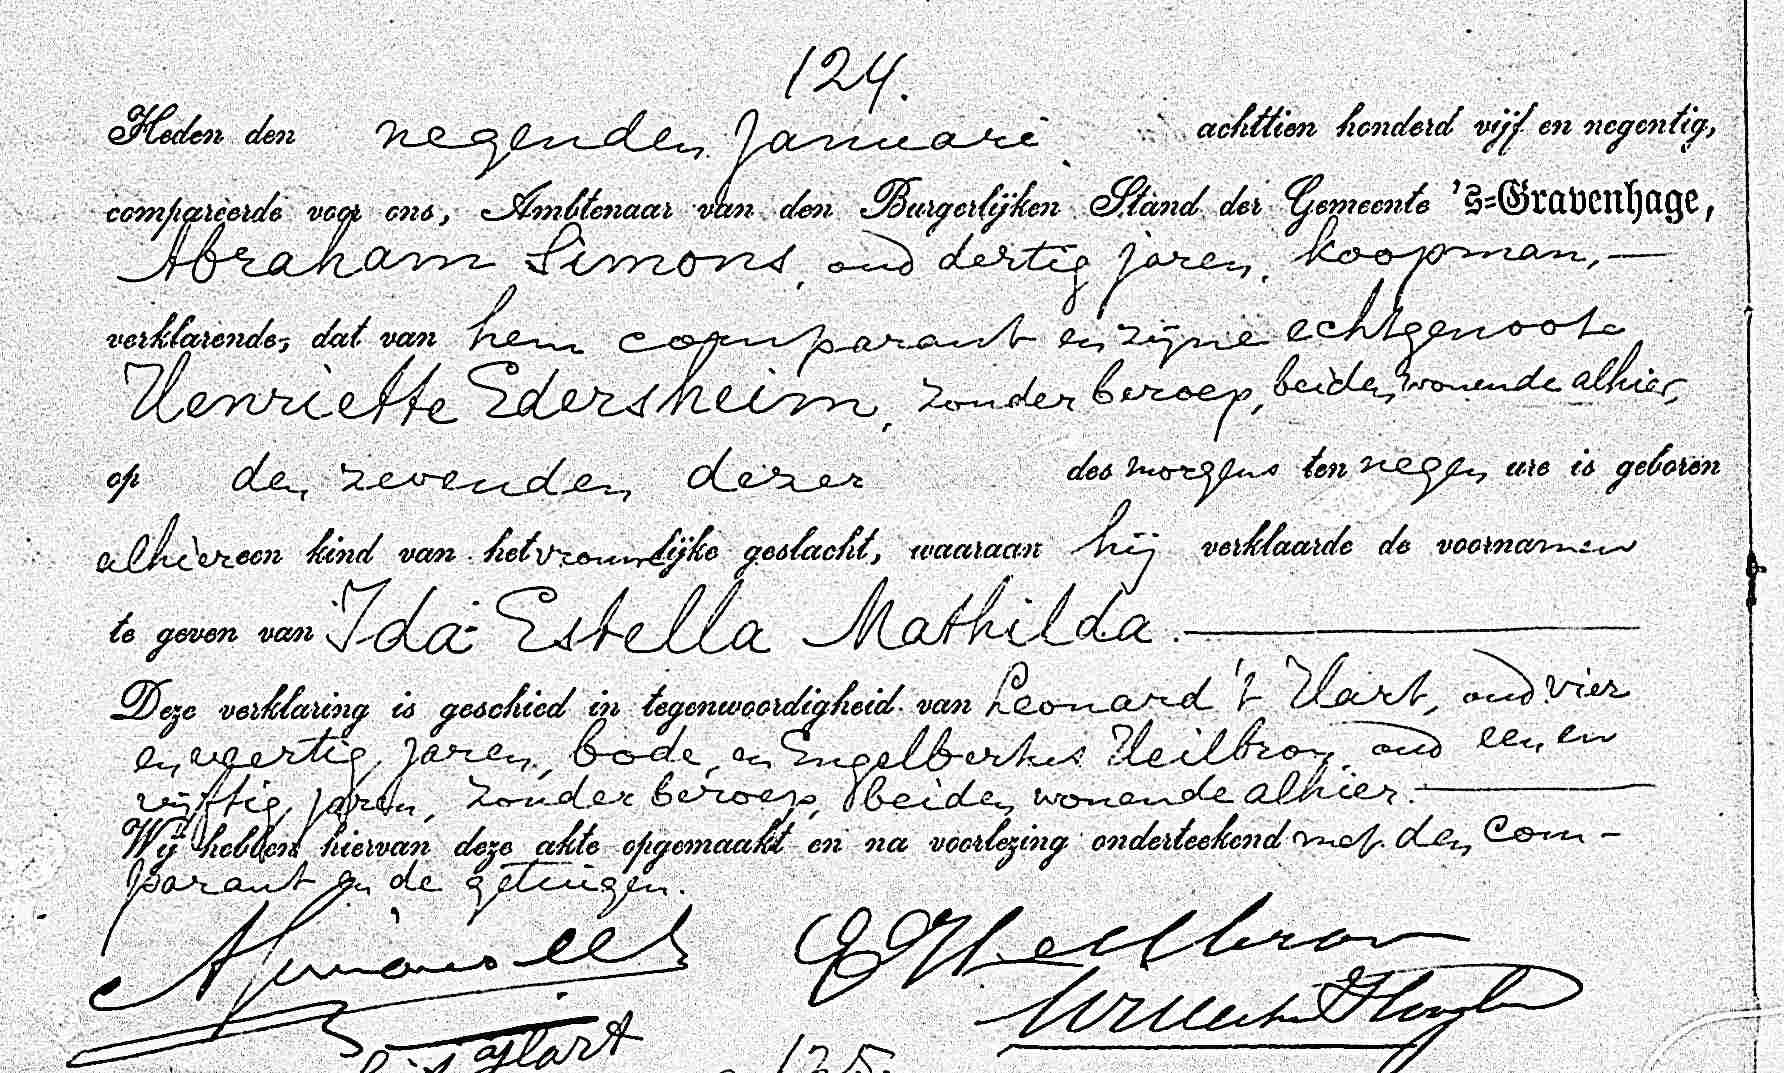 124.
Heden den negenden Januari achttien honderd vijf en negentig,
compareerde voor ons, Ambtenaar van den Burgerlijken Stand der Gemeente 's=Gravenhage,
Abraham Simons, oud dertig jaren, koopman, —
verklarende, dat van hem comparant en zijne echtgenoote
Henriette Edersheim, zonder beroep, beiden wonende alhier,
op den zevenden dezer des morgens ten negen ure is geboren
alhier een kind van het vrouwelijke geslacht, waaraan hij verklaarde de voornamen
te geven van Ida Estella Mathilda. —
Deze verklaring is geschied in tegenwoordigheid van Leonard 't Hart, oud vier
en veertig jaren, bode, en Engelbertus Heilbron, oud een en
vijftig jaren, zonder beroep, beiden wonende alhier. —
Wij hebben hiervan deze akte opgemaakt en na voorlezing onderteekend met den com-
parant en de getuigen.
A Simons EHeilbron
'tHart
125.